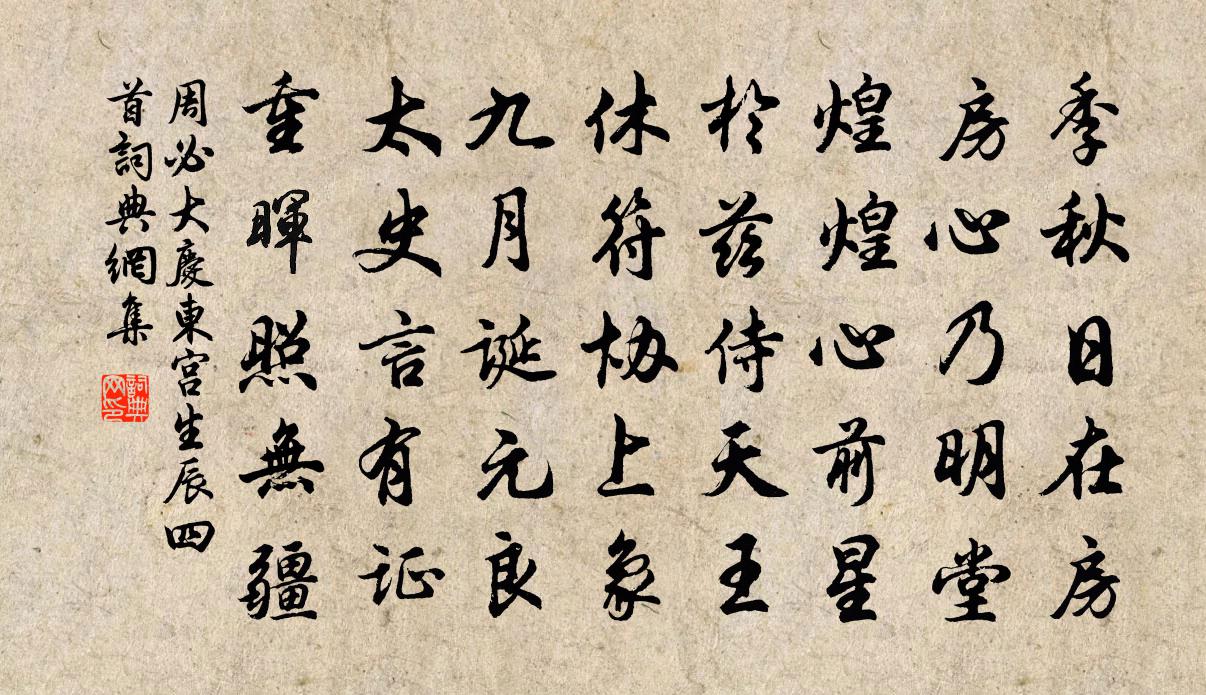 季秋日在房
房心乃明堂
煌煌心前星
於兹侍天王
休符协上象
九月誕元良
太史言有証
重暉照無疆
周必大慶東宮生辰四
首詞典網集
詞典网印